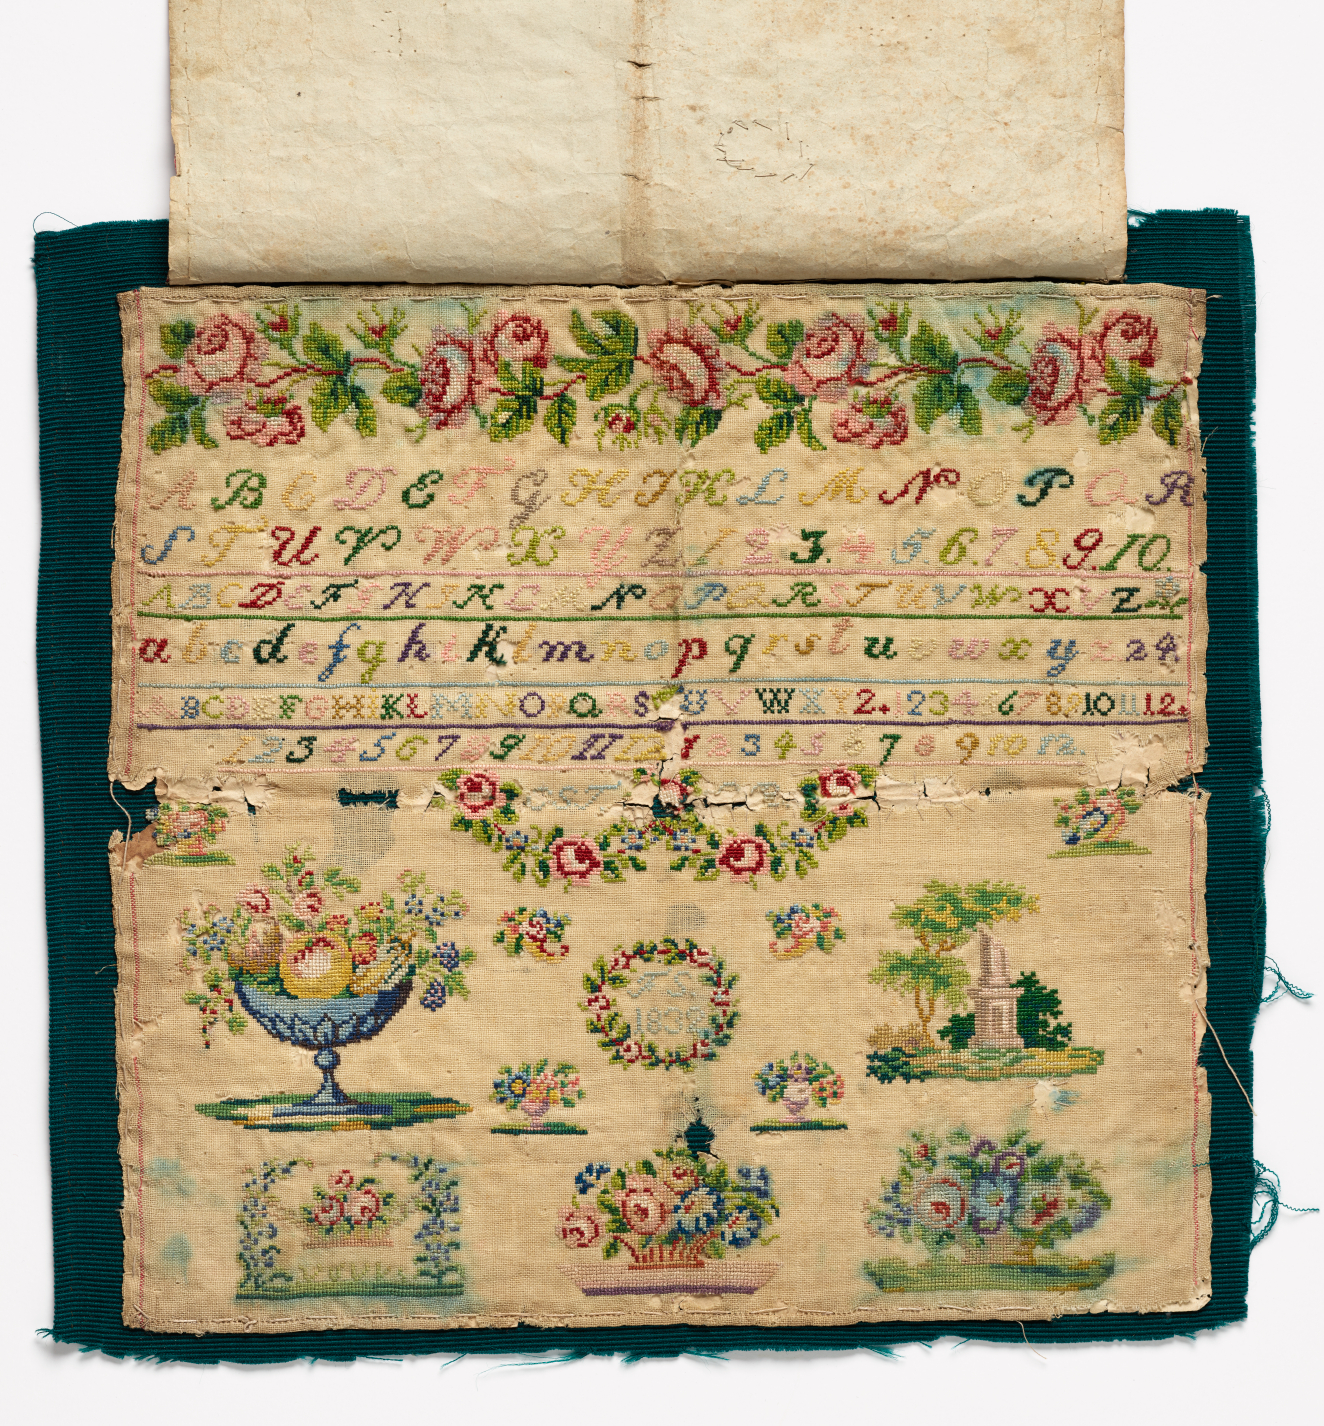 A B C D E F G H I K L M N O P Q R
S T U V W X Y Z 1. 2. 3. 4. 5. 6. 7. 8. 9. 10.
A B C D E F G H I K L M N O P Q R S T U V W X Y Z
a b c d e f g h i k l m n o p q r s t u s w x y z &
A B C D E F G H I K L M N O P Q R S T U V W X Y Z. 1 2 3 4 5 6 7 8 9 10 11 12.
1 2 3 4 5 6 7 8 9 10 11 12 1 2 3 4 5 6 7 8 9 10 12.
1832